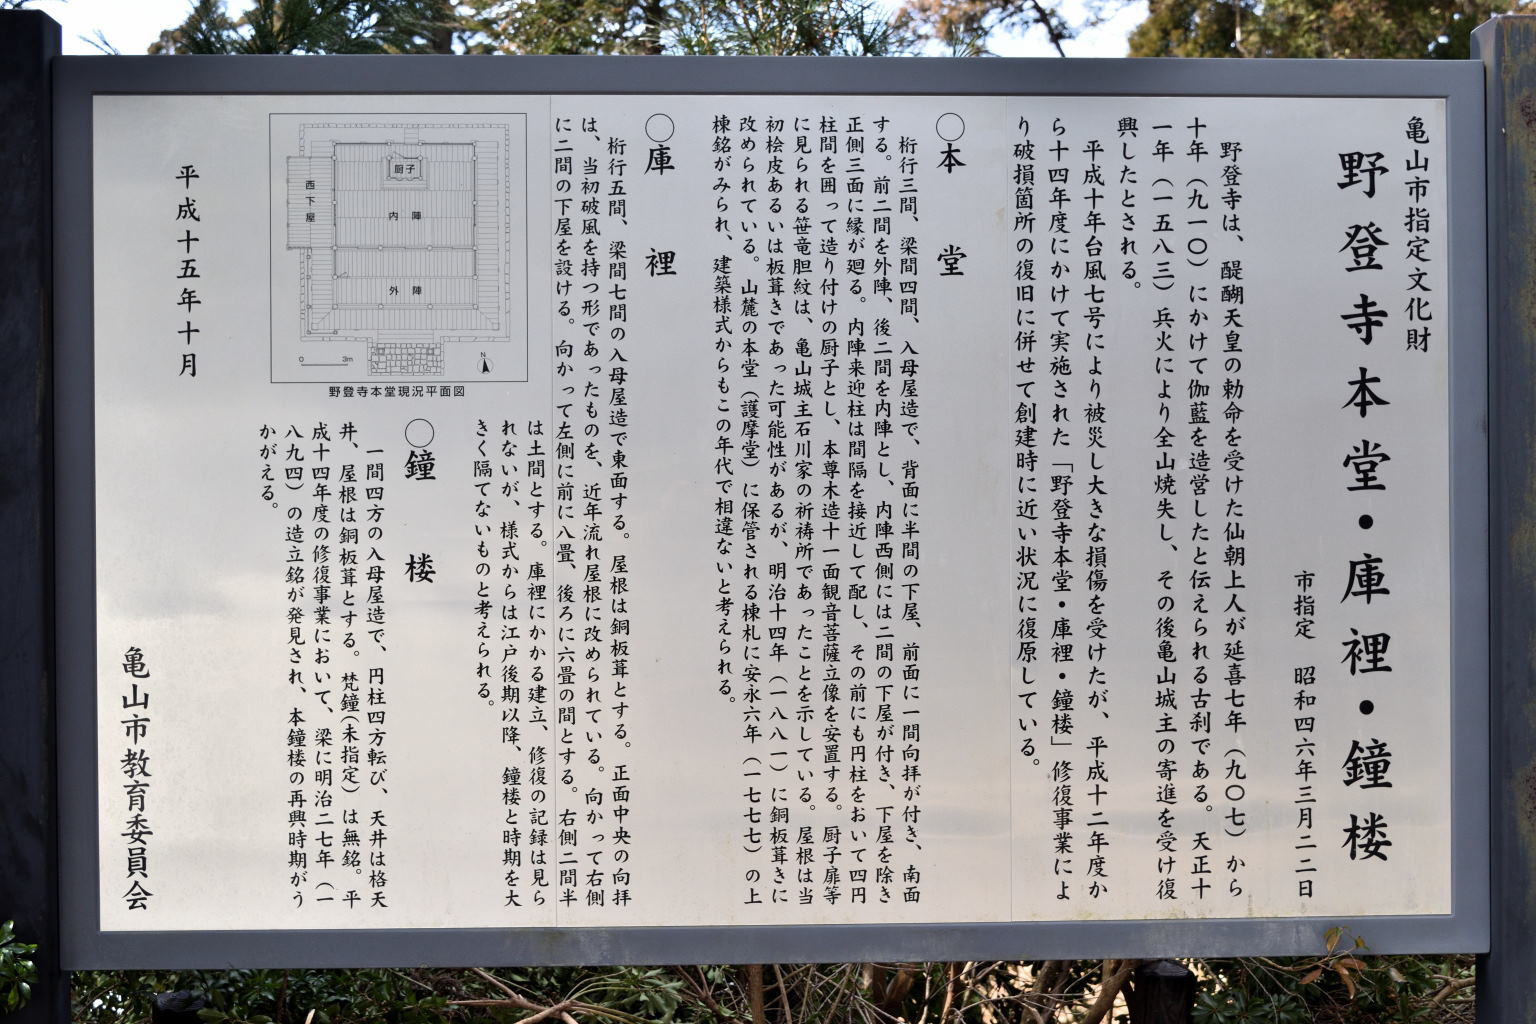 亀山市指定文化財
野登寺本堂・庫裡・鐘楼
市指定　昭和四六年三月二二日
野登寺は、醍醐天皇の勅命を受けた仙朝上人が延喜七年（九〇七）から
十年（九一〇）にかけて伽藍を造営したと伝えられる古刹である。天正十
一年（一五八三）兵火により全山焼失し、その後亀山城主の寄進を受け復
興したとされる。
平成十年台風七号により被災し大きな損傷を受けたが、平成十二年度か
ら十四年度にかけて実施された「野登寺本堂・庫裡・鐘楼」修復事業によ
り破損箇所の復旧に併せて創建時に近い状況に復原している。
〇本堂
桁行三間、梁間四間、入母屋造で、背面に半間の下屋、前面に一間向拝が付き、南面
する。前二間を外陣、後二間を内陣とし、内陣西側には二間の下屋が付き、下屋を除き
正側三面に縁が廻る。内陣来迎柱は間隔を接近して配し、その前にも円柱をおいて四円
柱間を囲って造り付けの厨子とし、本尊木造十一面観音菩薩立像を安置する。厨子扉等
に見られる笹竜胆紋は、亀山城主石川家の祈祷所であったことを示している。屋根は当
初桧皮あるいは板葺きであった可能性があるが、明治十四年（一八八一）に銅板葺きに
改められている。山麓の本堂（護摩堂）に保管される棟札に安永六年（一七七七）の上
棟銘がみられ、建築様式からもこの年代で相違ないと考えられる。
〇庫裡
桁行五間、梁間七間の入母屋造で東面する。屋根は銅板葺とする。正面中央の向拝
は、当初破風を持つ形であったものを、近年流れ屋根に改められている。向かって右側
に二間の下屋を設ける。向かって左側に前に八畳、後ろに六畳の間とする。右側二間半
は土間とする。庫裡にかかる建立、修復の記録は見ら
れないが、様式からは江戸後期以降、鐘楼と時期を大
きく隔てないものと考えられる。
〇鐘楼
一間四方の入母屋造で、円柱四方転び、天井は格天
井、屋根は銅板葺とする。梵鐘(未指定）は無銘。平
成十四年度の修復事業において、梁に明治二七年（一
八九四）の造立銘が発見され、本鐘楼の再興時期がう
かがえる。
厨子
西下屋
内陣
外陣
0 3m
N
野登寺本堂現況平面図
平成十五年十月
亀山市教育委員会